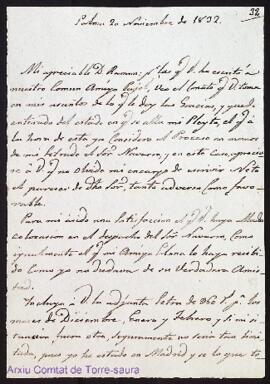 32
Noviembre de 1832.
Mi apreciable D. Ramon: p.r las q.e V. ha escrito a
nuestro Comun Amigo veo el Cariño q.e V. toma
en mis asuntos de lo q.e le doy las Gracias, y quedo
enterado del estado en q.e se alla mi Pleyto, el q.e a
la hora de esta ya Considero el Proceso en manos de
mi Letrado el Sor Navarro, y en este Caso, aprecia-
re a V. q.e no olvide mi encargo de enviar Nota
del parecer de Dho Sor, tanto adverso como favo-
rable.
Para mi á sido una Satisfaccion el q.e V. haya
en el despacho del Sor Navarro, Como
igualmente el q.e mi Amigo Llano lo haya recibido
Como yo no dudava de su Verdadera Amis-
tad.
Incluyo a V. la adjunta Letra de 360
meses de Diciembre, Enero y Febrero y si
otra, Seguramente no
pues yo he estado en Madrid y se lo que
Arxiu Comtat de Torre-saura